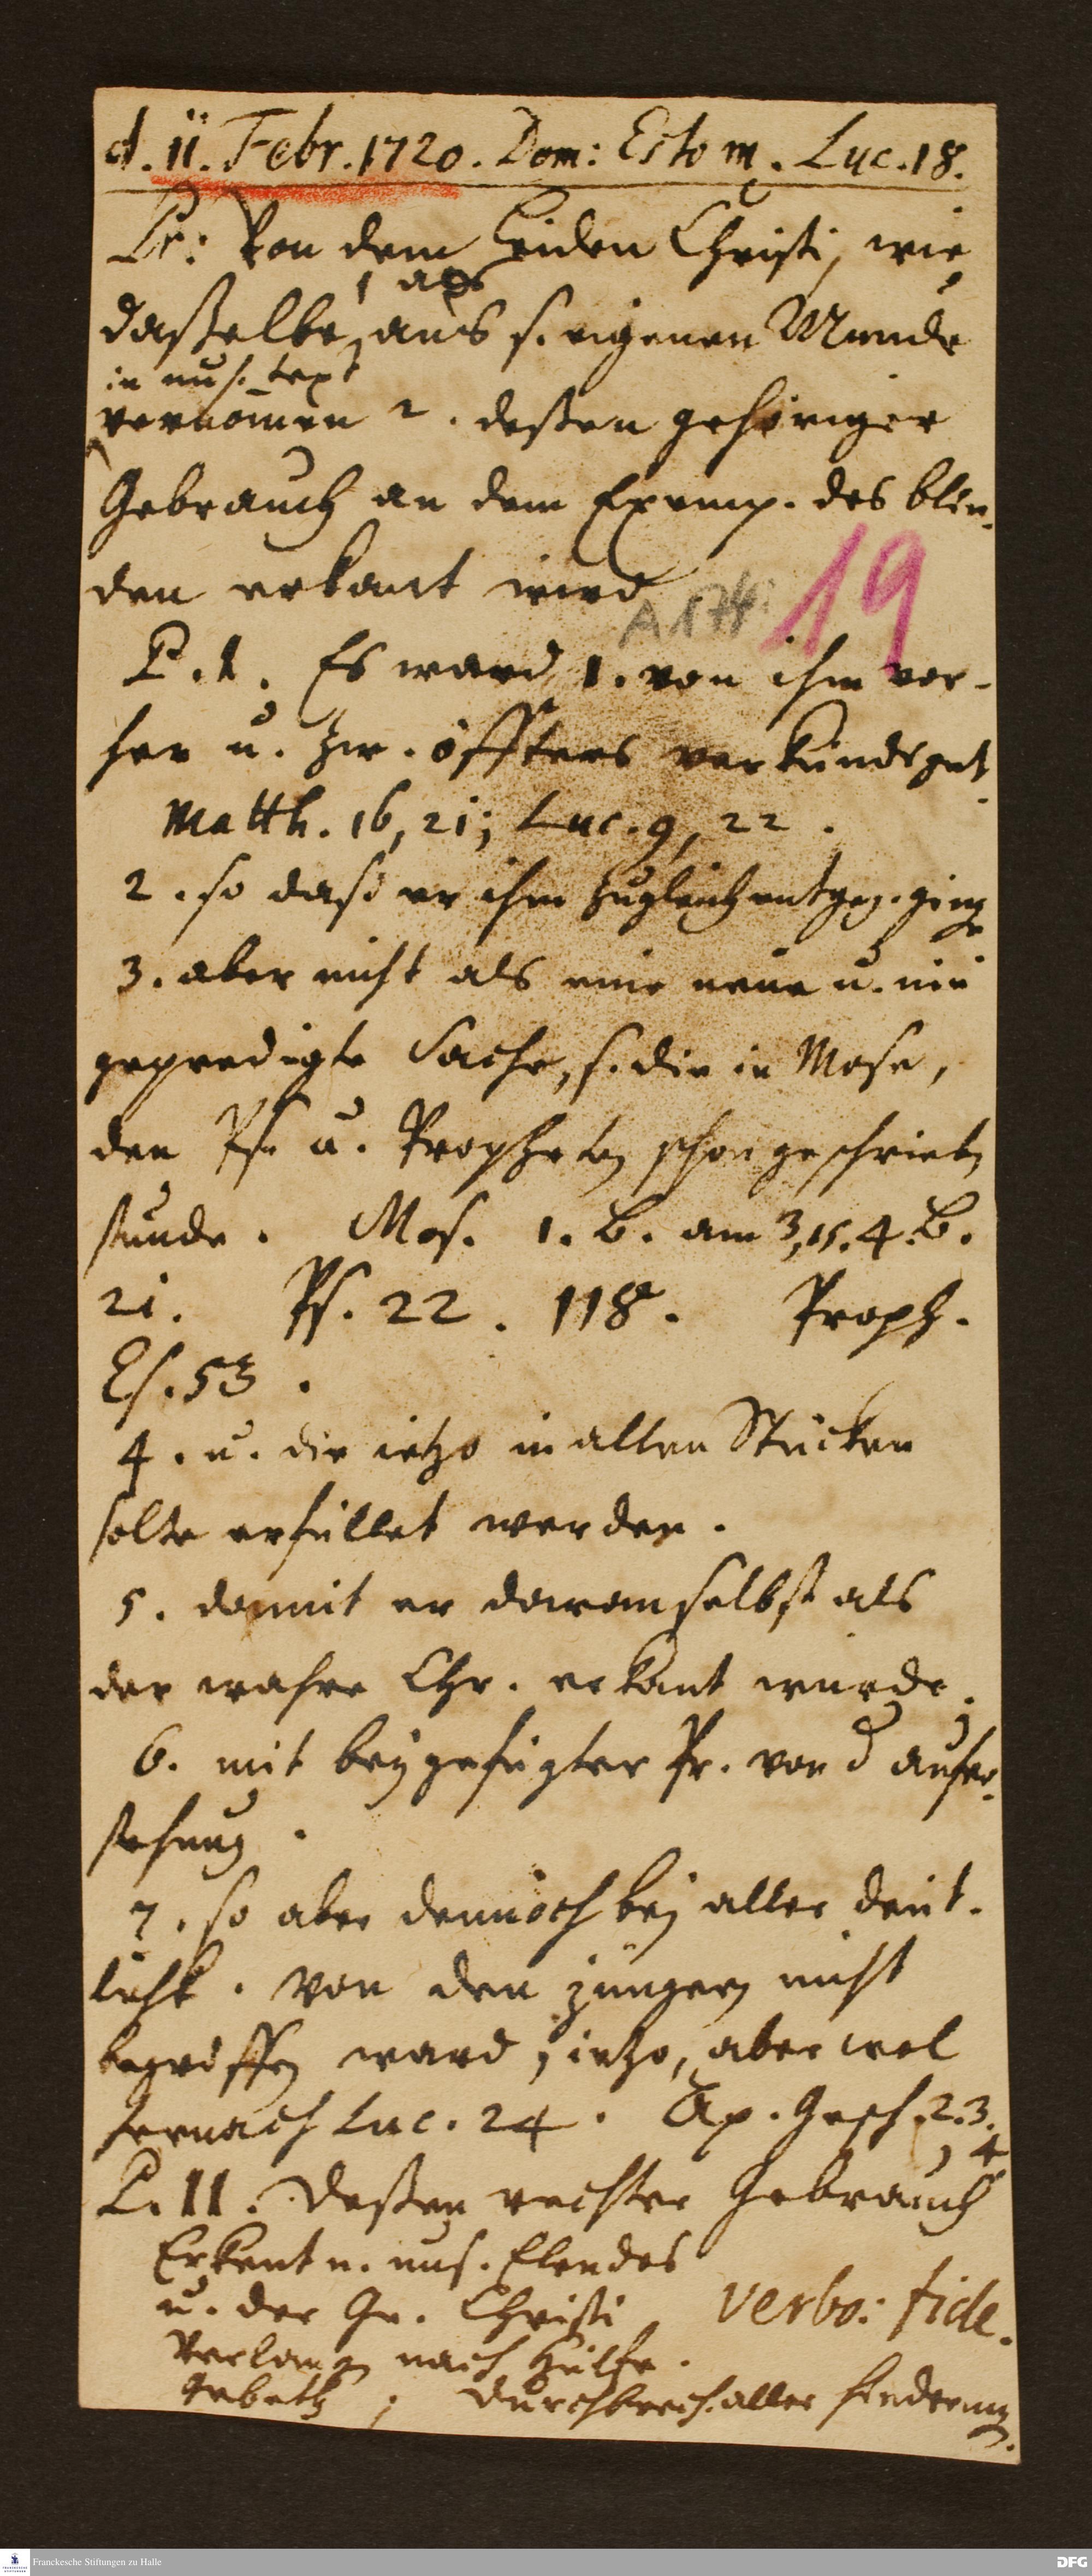 d. 11. Febr. 1720. Dom: Esto m. Luc. 18.
Pr: Von dem Leiden Christi, wie
1
daßelbe aus s. eigenen Munde
in uns. text
vernomen 2. deßen gehöriger
Gebrauch an dem Exemp. des blin-
den erkant wird
A 174: 19
P. 1. Es ward 1. von ihm vor-
her u. zw. öffters verkündiget
Matth. 16, 21; Luc. 9, 22.
2. so daß er ihm zugleich entgeg. ging
3. aber nicht als eine neue u. nie
gepredigte Sache, s. die in Mose,
den Ps. u. Propheten schon geschrieben
stunde. Mos. 1. B. am 3, 15. 4. B.
21. Ps. 22. 118. Proph.
Es. 53.
4. u. die ietzo in allen Stücken
solte erfüllet werden.
5. damit er daran selbst als
der wahre Chr. erkant würde.
6. mit beygefügter Pr. von d aufer-
stehung.
7. so aber dennoch bey aller deut-
lichk. von den jüngern nicht
begriffen ward, ietzo, aber wol
hernach Luc. 24. Ap. Gesch. 2. 3.
4
P. II. Deßen rechter Gebrauch
Erkent n. uns. Elendes
u. der Gn. Christi verbo: fide.
Verlangen nach Hülfe.
Gebeth; durchbrech. aller hinderung.
Franckesche Stiftungen zu Halle
DFG